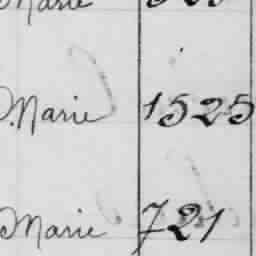 Marie
Marie 1525
Marie 721